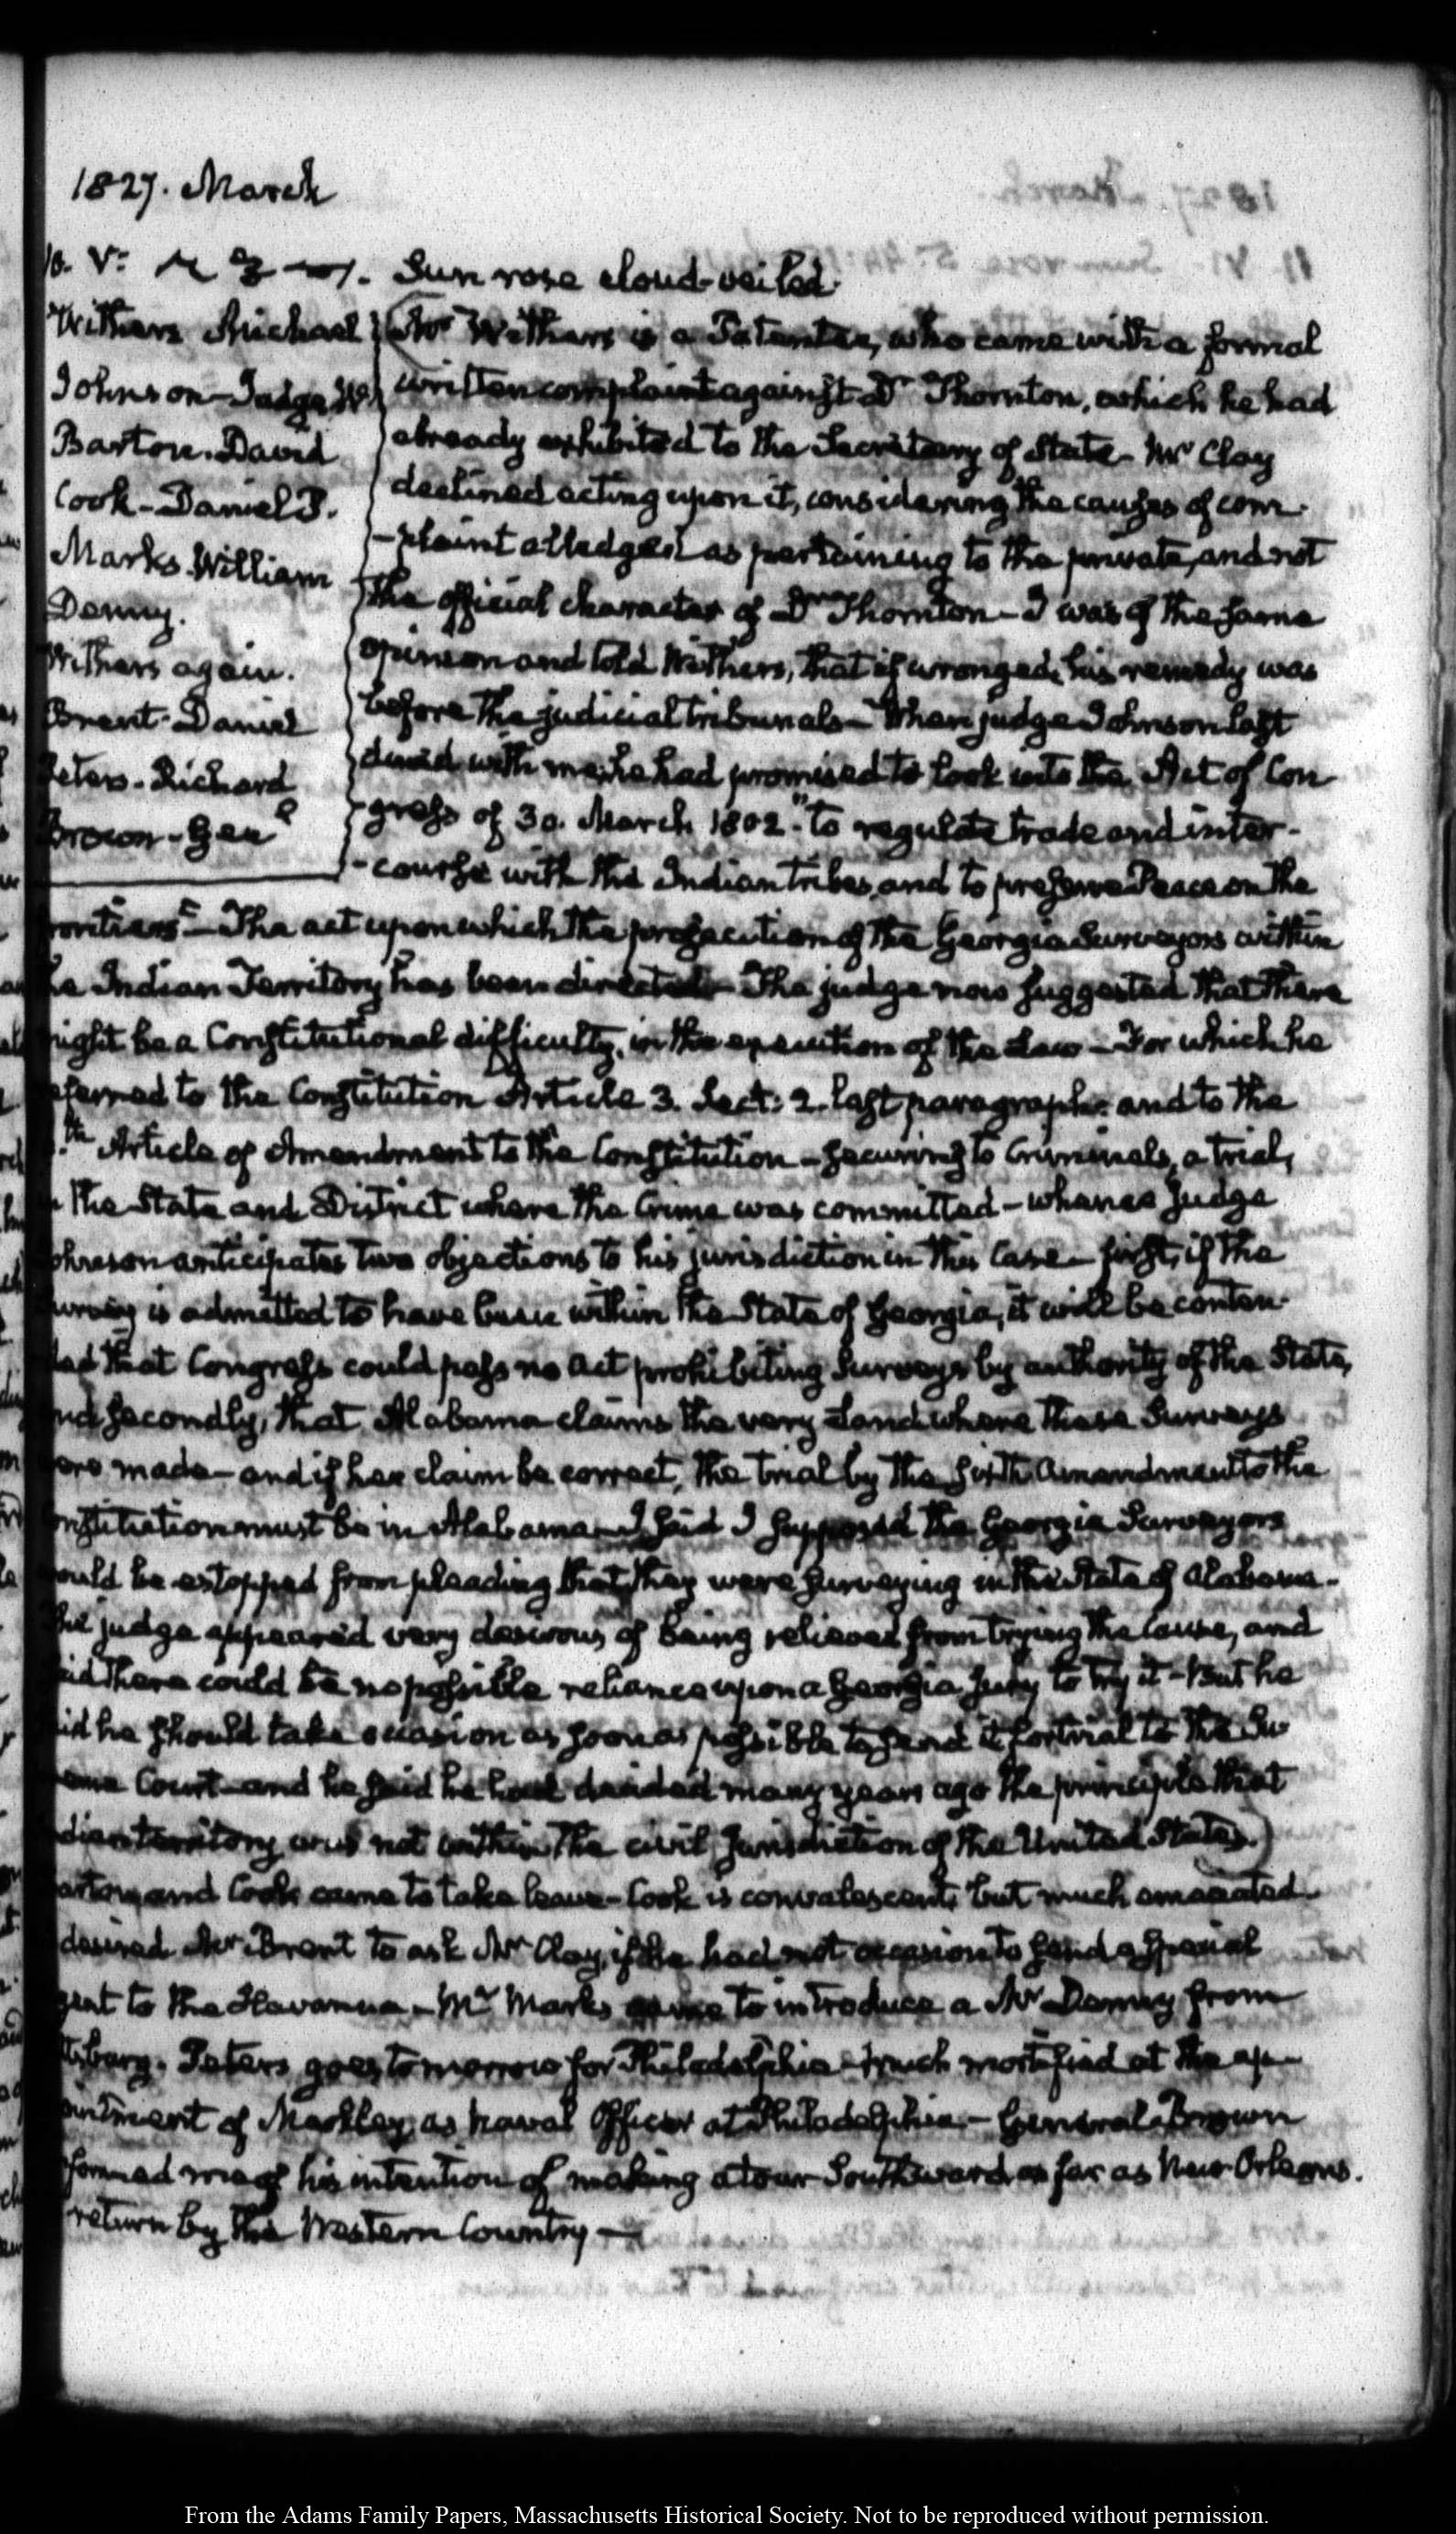 1827. March
10. V: Sun rose cloud-veiled.
Withers Michael
Johnson-Judge W.
Barton. David
Cook-Daniel P.
Marks. William
Denny.
Withers again.
Brent-Daniel
Peters-Richard
Brown-Genl
Mr Withers is a Patentee, who came with a formal
written complaint against Dr Thornton, which he had
already exhibited to the Secretary of State- Mr Clay
declined acting upon it, considering the causes of com-
-plaint alledged as pertaining to the private, and not
the official character of Dr Thornton- I was of the same
opinion and told Withers, that if wronged, his remedy was
before the judicial tribunals- When judge Johnson last
dined with me, he had promised to look into the Act of Con-
-gress of 30. March 1802. "to regulate trade and inter-
-course with the Indian tribes, and to preserve Peace on the
frontiers"- The act upon which the prosecution of the Georgia Surveyors within
the Indian Territory has been directed- The judge now suggested that there
might be a Constitutional difficulty, in the execution of the Law- For which he
referred to the Constitution Article 3. Sect: 2. last paragraph. and to the
th Article of Amendment to the Constitution- securing to Criminals, a trial,
in the State and District where the Crime was committed- whence Judge
Johnson anticipates two objections to his jurisdiction in this Case- first, if the
survey is admitted to have been within the State of Georgia, it will be conten-
ded that Congress could pass no act prohibiting Surveys by authority of the State,
and secondly, that Alabama claims the very Land where these Surveys
were made- and if her claim be correct, the trial by the sixth amendment to the
Constitution must be in Alabama- I said I supposed the Georgia Surveyors
would be estopped from pleading that they were surveying in the State of Alabama.
The judge appeared very desirous of being relieved from trying the cause, and
said there could be no possible reliance upon a Georgia Jury to try it- But he
said he should take occasion as soon as possible to send it for trial to the Su-
preme Court- and he said he had decided many years ago the principle that
Indian territory was not within the civil Jurisdiction of the United States.)
Barton and Cook came to take leave- Cook is convalescent, but much emaciated.
desired Mr Brent to ask Mr Clay, if he had not occasion to send a special
agent to the Havanna.- Mr Marks came to introduce a Mr Denny from
Pittsburg. Peters goes tomorrow for Philadelphia- much mortified at the ap-
pointment of Markley, as Naval Officer at Philadelphia.- General Brown
informed me of his intention of making a tour Southward as far as New-Orleans.
return by the Western Country-
From the Adams Family Papers, Massachusetts Historical Society. Not to be reproduced without permission.